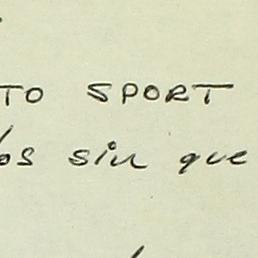 TO SPORT
os sin que